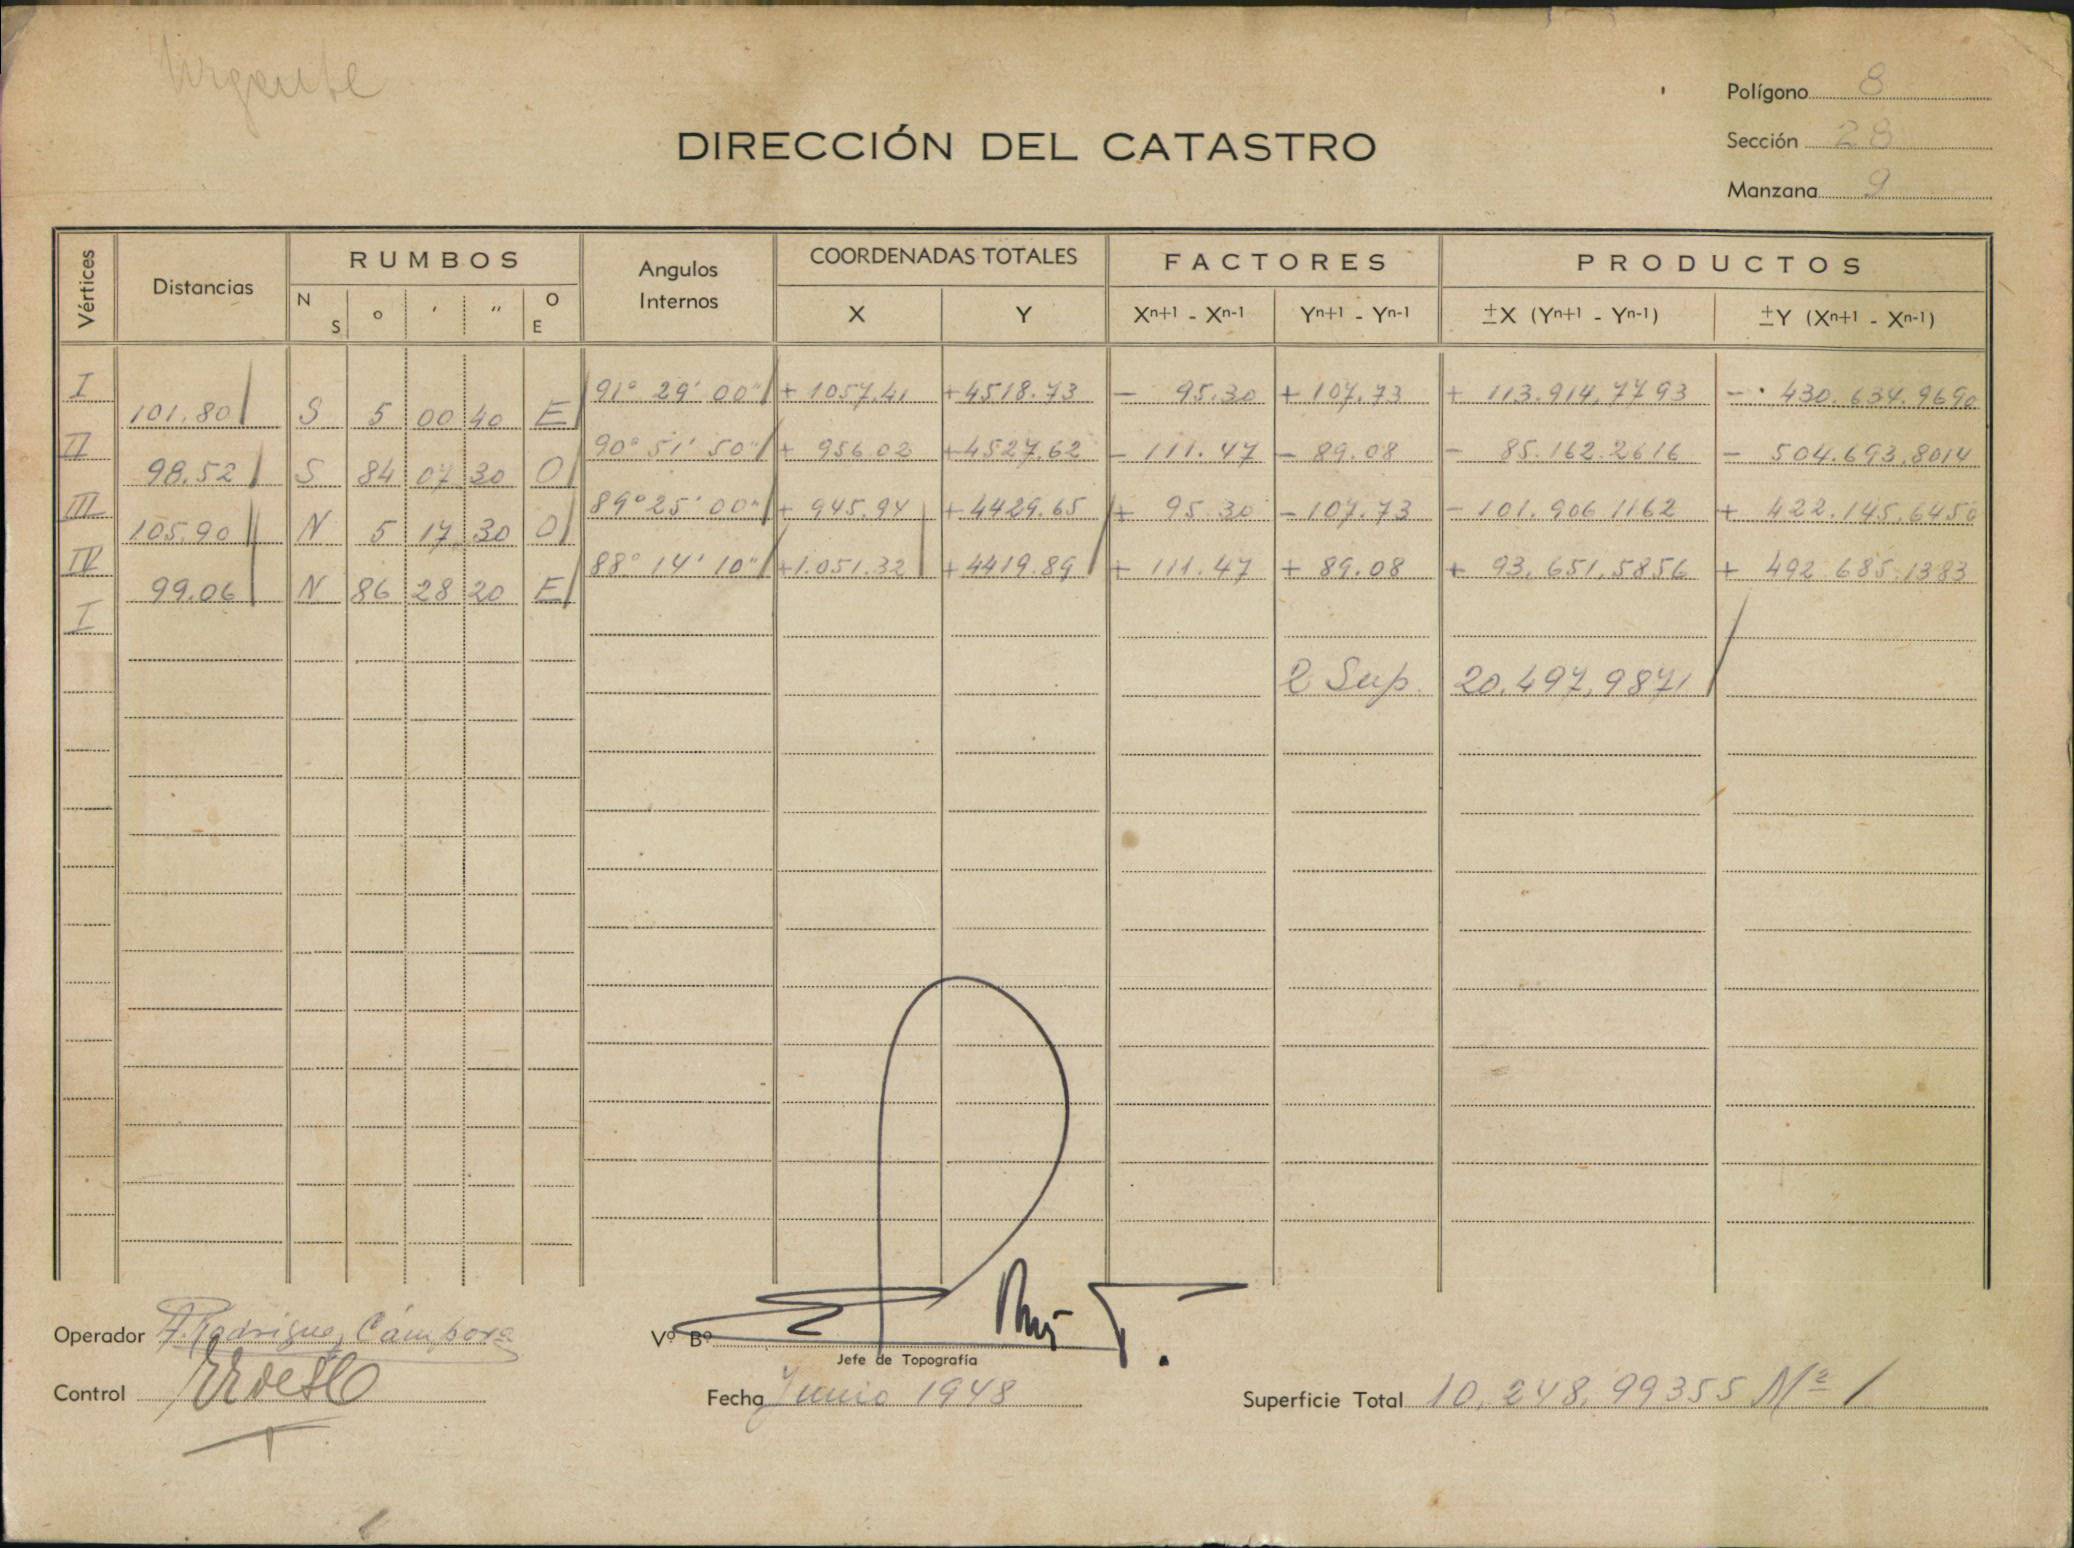 Urgente
Polígono 8
DIRECCIÓN DEL CATASTRO
Sección 28
Manzana 9
Vértices Distancias RUMBOS Angulos Internos COORDENADAS TOTALES FACTORES PRODUCTOS
N S ° ′ ″ O E X Y Xⁿ⁺¹ - Xⁿ⁻¹ Yⁿ⁺¹ - Yⁿ⁻¹ ±X (Yⁿ⁺¹ - Yⁿ⁻¹) ±Y (Xⁿ⁺¹ - Xⁿ⁻¹)
I 91° 29' 00" + 1057.41 +4518.73 - 95.30 + 107.73 + 113.914,7793 - 430.634.9690
101.80 S 5 00 40 E
II 90° 51' 50" + 956.02 +4527.62 - 111.47 - 89.08 - 85.162.2616 - 504.693.8014
98.52 S 84 07 30 O
III 89° 25' 00" + 945.94 + 4429.65 + 95.30 - 107.73 - 101.906 1162 + 422.145.6450
105.90 N 5 17 30 O
IV 88° 14' 10" +1.051.32 + 4419.89 + 111.47 + 89.08 + 93.651,5856 + 492.685.1383
99.06 N 86 28 20 E
I
2 Sup. 20.497,9871
Operador A. Rodriguez Cámpora
Vº Bº
Jefe de Topografía
Control
Fecha Junio 1948
Superficie Total 10.248,99355 M²